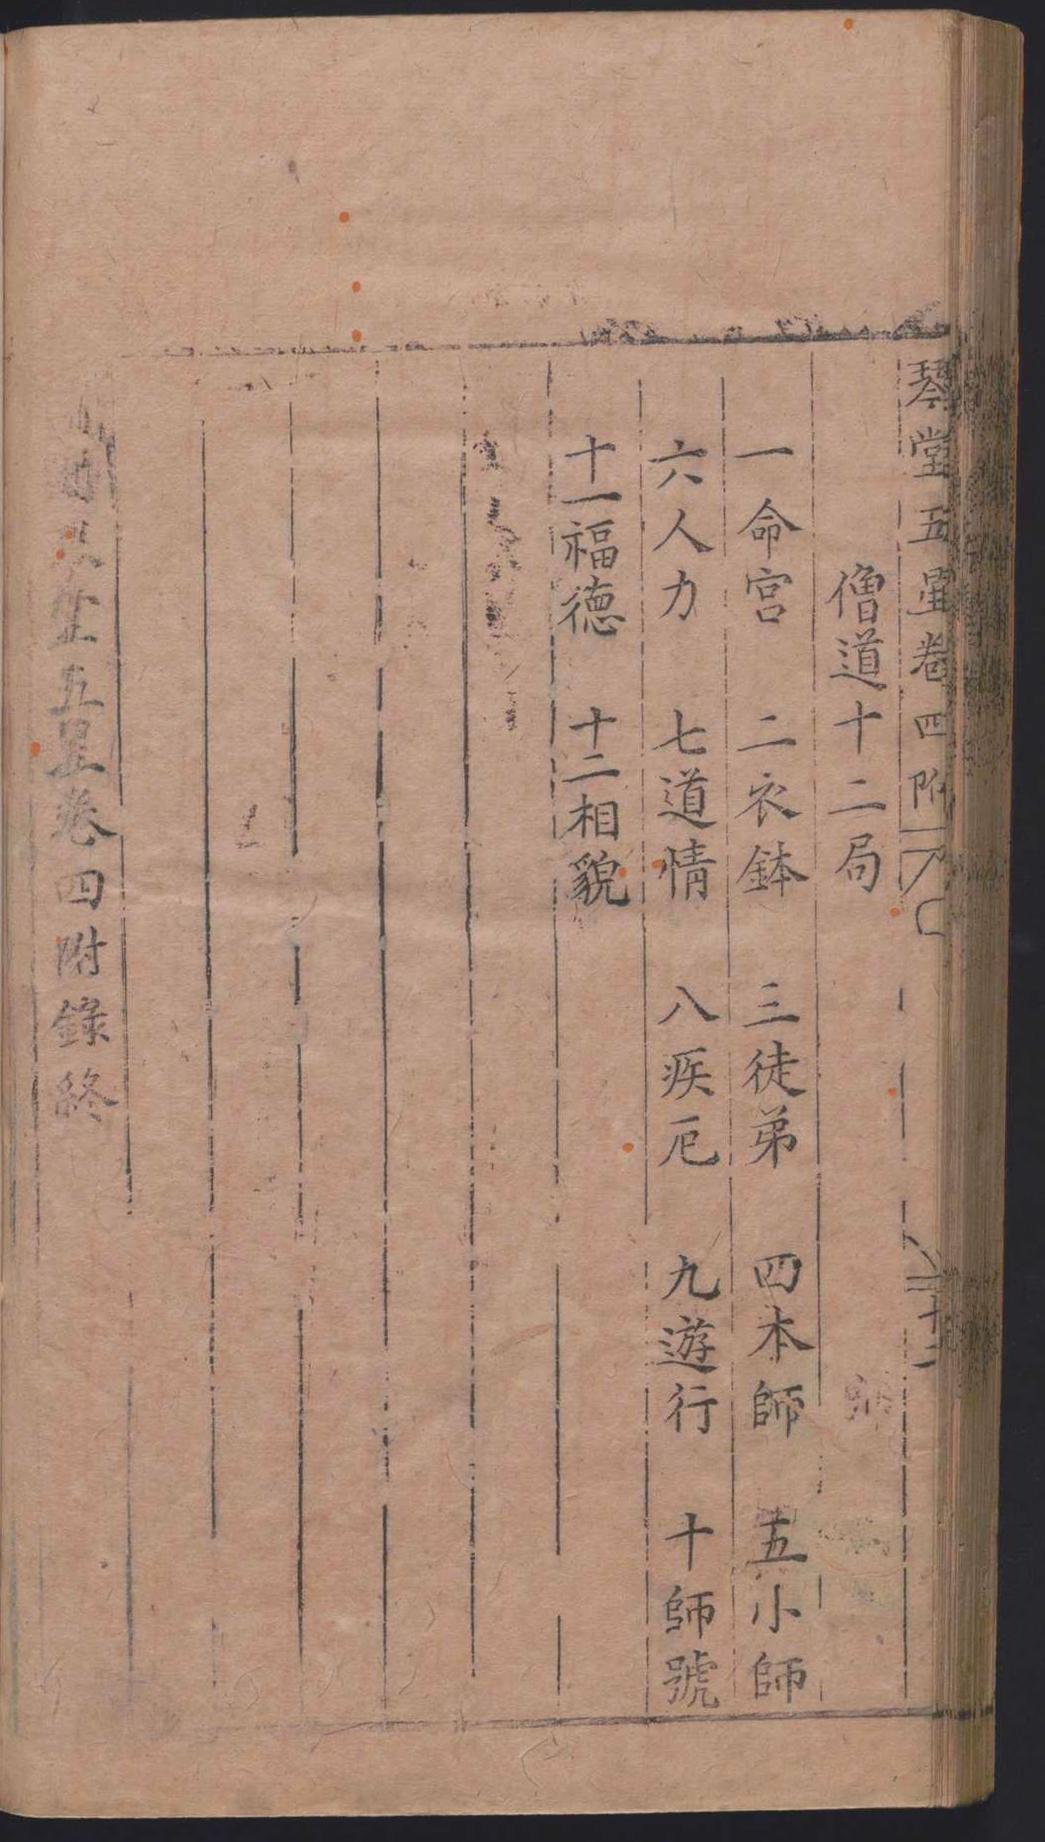 琴堂五星卷四附
十二
僧道十二局
一命宮 二衣鉢 三徒弟 四本師 五小師
六人力 七道情 八疾厄 九遊行 十師號
十一福德 十二相貌
堂五星卷四附錄終